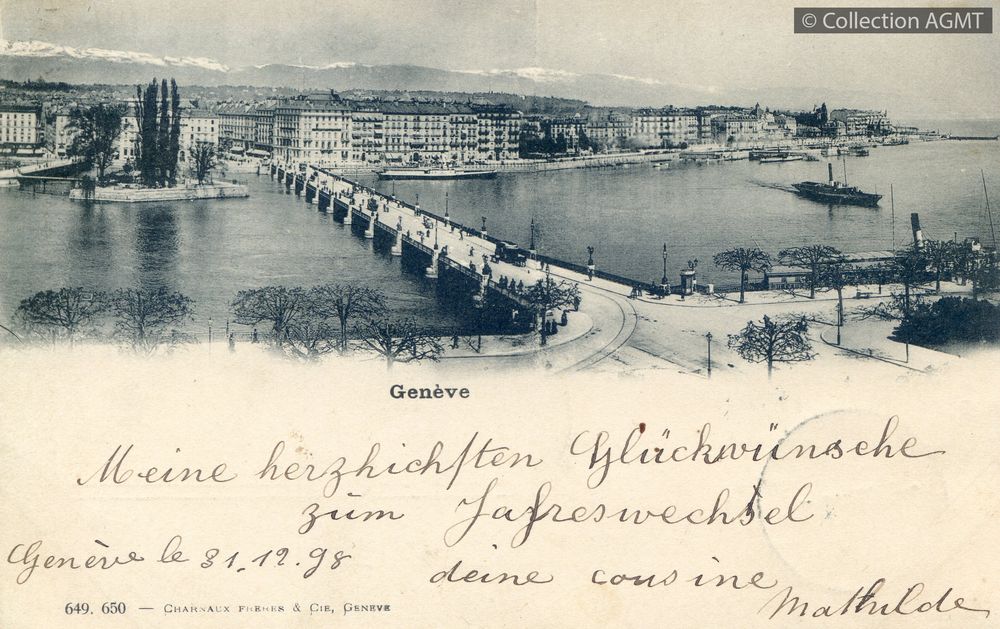 © Collection AGMT
Genève
Meine herzhichsten Glückwünsche
zum Jahreswechsel
Genève le 31.12.98
deine cousine
Mathilde
649. 650 — CHARNAUX FRÈRES & CIE, GENÈVE